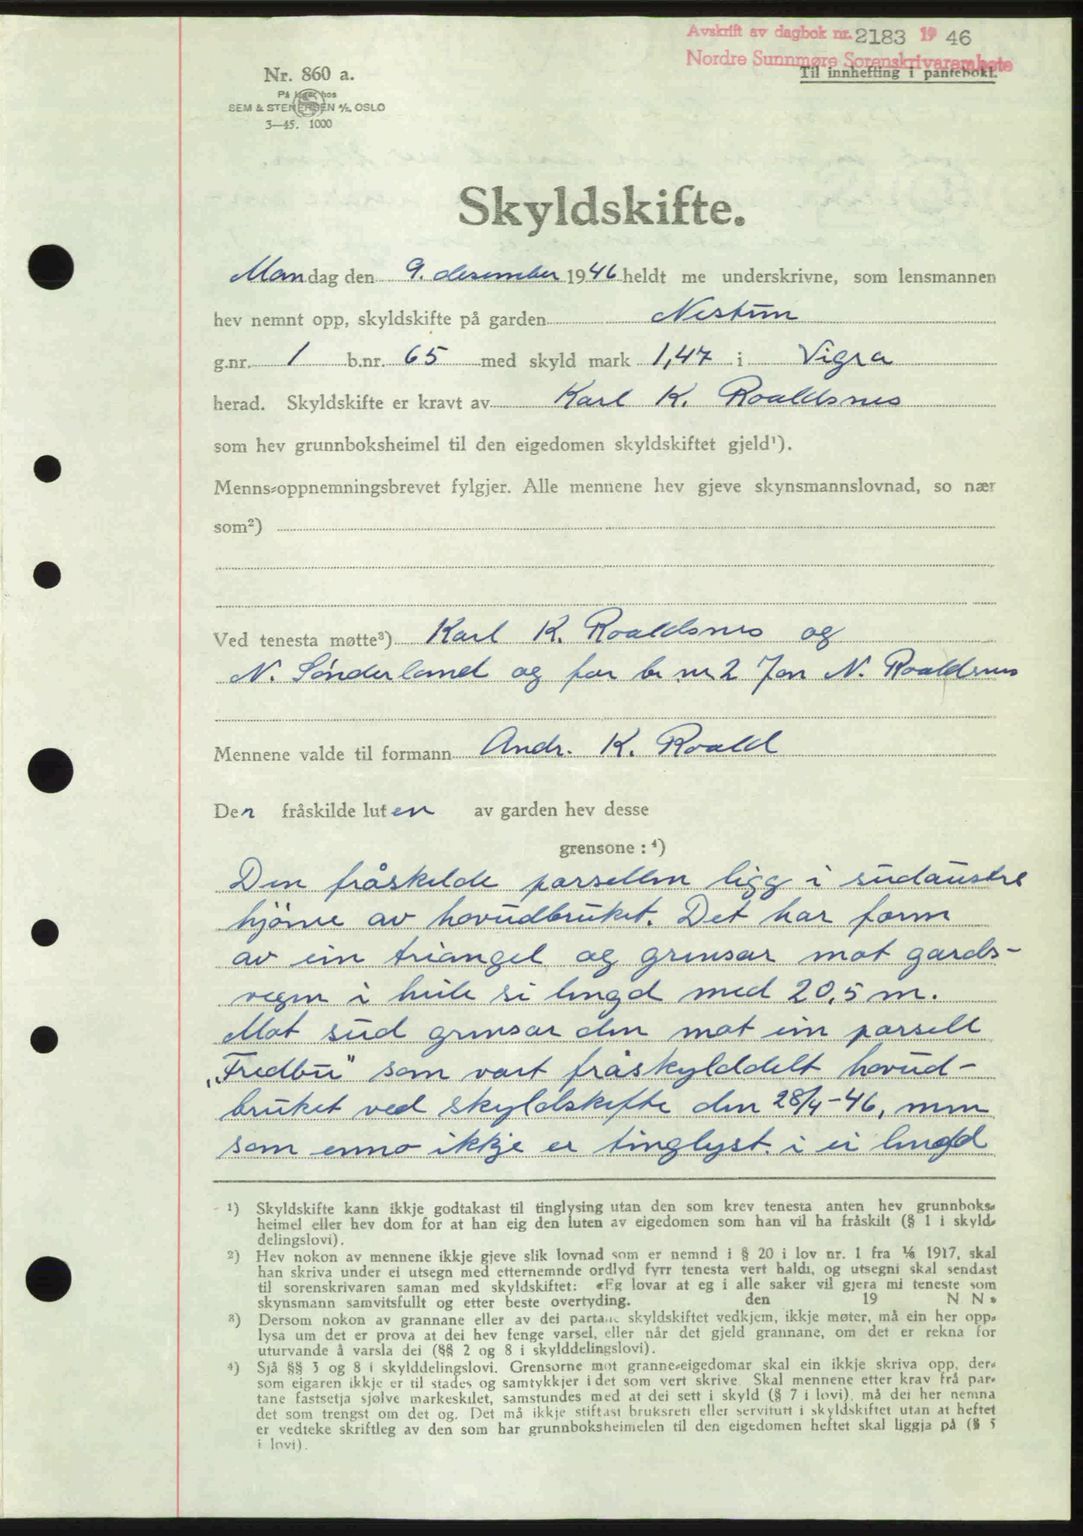 Avskrift av dagbok nr. 2183 1946
Nordre Sunnmøre Sorenskrivarembete
Til innhefting i pantebok.
Nr. 860 a.
På lager hos
SEM & STENERSEN A/S, OSLO
3—45. 1000
Skyldskifte.
Mandag den 9. desember 1946 heldt me underskrivne, som lensmannen
hev nemnt opp, skyldskifte på garden Nestun
g.nr. 1 b.nr. 65 med skyld mark 1,47 i Vigra
herad. Skyldskifte er kravt av Karl K. Roaldsnes
som hev grunnboksheimel til den eigedomen skyldskiftet gjeld¹).
Menns-oppnemningsbrevet fylgjer. Alle mennene hev gjeve skynsmannslovnad, so nær
som²)
Ved tenesta møtte³) Karl K. Roaldsnes og
N. Sønderland og for br nr 2 Jon N. Roaldsnes
Mennene valde til formann Andr. K. Roald
Den fråskilde luten av garden hev desse
grensone : ⁴)
Den fråskilde parsellen ligg i sudaustre
hjörne av hovudbruket. Det har form
av ein triangel og grensar mot gards-
vegen i heile si lengd med 20,5 m.
Mot sud grensar den mot ein parsell
„Fredbu" som vart fråskylddelt hovud-
bruket ved skyldskifte den 28/4-46, men
som enno ikkje er tinglyst. i ei lengd
¹) Skyldskifte kann ikkje godtakast til tinglysing utan den som krev tenesta anten hev grunnboks-
heimel eller hev dom for at han eig den luten av eigedomen som han vil ha fråskilt (§ 1 i skyld-
delingslovi).
²) Hev nokon av mennene ikkje gjeve slik lovnad som er nemnd i § 20 i lov nr. 1 fra 1/6 1917, skal
han skriva under ei utsegn med etternemnde ordlyd fyrr tenesta vert haldi, og utsegni skal sendast
til sorenskrivaren saman med skyldskiftet: «Eg lovar at eg i alle saker vil gjera mi teneste som
skynsmann samvitsfullt og etter beste overtyding. den 19 N N »
³) Dersom nokon av grannane eller av dei partane skyldskiftet vedkjem, ikkje møter, må ein her opp-
lysa um det er prova at dei hev fenge varsel, eller når det gjeld grannane, om det er rekna for
uturvande å varsla dei (§§ 2 og 8 i skylddelingslovi).
⁴) Sjå §§ 3 og 8 i skylddelingslovi. Grensorne mot granne-eigedomar skal ein ikkje skriva opp, der-
som eigaren ikkje er til stades og samtykkjer i det som vert skrive. Skal mennene etter krav frå par-
tane fastsetja sjølve markeskilet, samstundes med at dei sett i skyld (§ 7 i lovi), må dei her nemna
det som trengst om det og. Det må ikkje stiftast bruksrett eller servitutt i skyldskiftet utan at heftet
er vedteke skriftleg av den som har grunnboksheimelen til den eigedomen heftet skal liggja på (§ 5
i lovi).